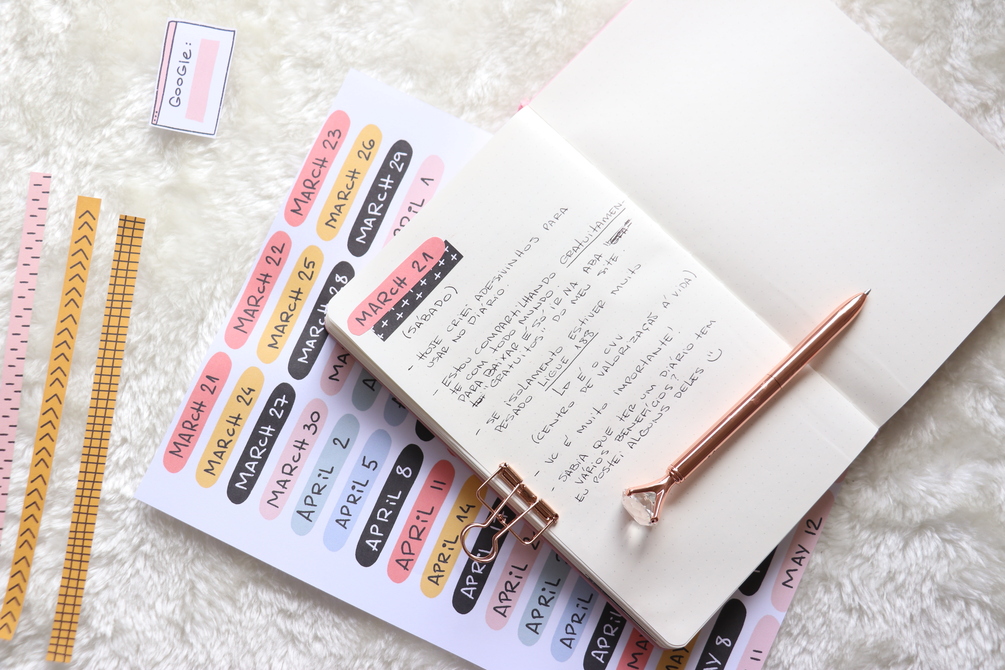 GOOGLE:
MARCH 23
MARCH 26
MARCH 29
APRIL 1
MARCH 22
MARCH 25
MARCH 28
MARCH 21
MARCH 24
MARCH 27
MARCH 30
APRIL 2
APRIL 5
APRIL 8
APRIL 11
APRIL 14
APRIL
APRIL 2
APRIL
APRIL
APRIL
MAY 8
MAY 12
11
MARCH 21
(SÁBADO)
- HOJE CRIEI ADESIVINHOS PARA
USAR NO DIÁRIO.
- ESTOU COMPARTILHANDO GRATUITAMEN-
TE COM TODO MUNDO:
PARA BAIXAR É SÓ IR NA ABA
"GRATUITOS" DO MEU SITE
- SE ISOLAMENTO ESTIVER MUITO
PESADO LIGUE 188
↳ É O CVV
(CENTRO DE VALORIZAÇÃO À VIDA)
- VC É MUITO IMPORTANTE!
- SABIA QUE TER UM DIÁRIO TEM
VÁRIOS BENEFÍCIOS?
EU POSTEI ALGUNS DELES :)